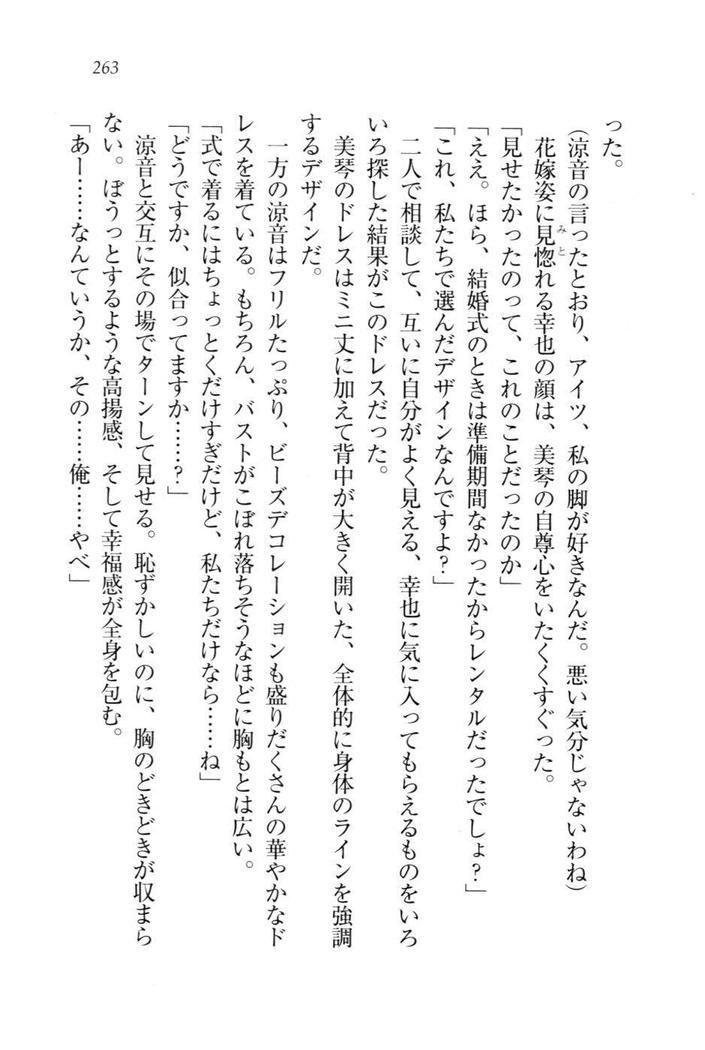 263
った。
（涼音の言ったとおり、アイツ、私の脚が好きなんだ。悪い気分じゃないわね）
花嫁姿に見惚れる幸也の顔は、美琴の自尊心をいたくくすぐった。
みと
「見せたかったのって、これのことだったのか」
「ええ。ほら、結婚式のときは準備期間なかったからレンタルだったでしょ？」
「これ、私たちで選んだデザインなんですよ？」
二人で相談して、互いに自分がよく見える、幸也に気に入ってもらえるものをいろ
いろ探した結果がこのドレスだった。
美琴のドレスはミニ丈に加えて背中が大きく開いた、全体的に身体のラインを強調
するデザインだ。
一方の涼音はフリルたっぷり、ビーズデコレーションも盛りだくさんの華やかなド
レスを着ている。もちろん、バストがこぼれ落ちそうなほどに胸もとは広い。
「式で着るにはちょっとくだけすぎだけど、私たちだけなら……ね」
「どうですか、似合ってますか……？」
涼音と交互にその場でターンして見せる。恥ずかしいのに、胸のどきどきが収まら
ない。ぼうっとするような高揚感、そして幸福感が全身を包む。
「あー……なんていうか、その……俺……やべ」